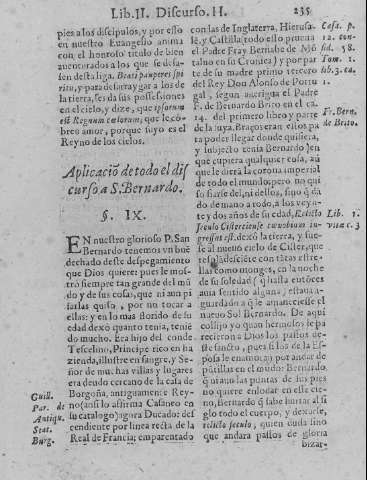 Lib. II. Discurso. II. 235
pies a los discipulos, y por esso
en nuestro Euangelio anima
con el honroso titulo de bien
auenturados a los que se desa-
sen desta liga. Beati pauperes spi
ritu, y para desarraygar a los de
la tierra, les da sus possessiones
en el cielo, y dize, que ipsorum
est Regnum cœlorum, que le có-
breo amor, porque suyo es el
Reyno de los cielos.
Aplicació de todo el dis
curso a S. Bernardo.
§. IX.
EN nuestro glorioso P. San
Bernardo tenemos vn buē
dechado deste despegamiento
que Dios quiere: pues le mos-
tró siempre tan grande del mū
do y de sus cosas, que ni aun pi
sarlas quiso, por no tocar a
ellas: y en lo mas florido de su
edad dexó quanto tenia, tenié
do mucho. Era hijo del conde
Tescelino, Principe rico en ha
zienda, illustre en sangre, y Se-
ñor de muchas villas y lugares
era deudo cercano de la casa de
Borgoña, antiguamente Rey-
no (ansi lo afirma Casaneo en
su catalogo) agora Ducado: des
cendiente por linea recta de la
Real de Francia; emparentado
Guill.
Par. de
Antiqu.
Stat.
Burg.
con las de Inglaterra, Hierusa-
lé, y Castilla: todo esto prueua
el Padre Fray Bernabe de Mō
taluo en su Cronica) y por par
te de su madre primo tercero
del Rey Don Alonso de Portu
gal, segun aueriguа el Padre
F. de Bernardo Brito en el ca.
14. del primero libro y parte
de la suya. Bragos eran estos pa
ra poder llegar donde quisiera,
y subjecto tenia Bernardo en
que cupiera qualquier cosa, aū
que le diera la corona imperial
de todo el mundo: pero no qui
so fiarse del, ni dellos, sino q̃ dá
do de mano a todo, a los veyn-
te y dos años de su edad, Relicto
sæculo Cisterciense cœnobium in-
gressus est. dexó la tierra, y fue-
se al nueuo cielo de Cister, que
resplandesciete con tátas estre-
llas como monges, en la noche
de su soledad (q̃ hasta entōces
auia sentido alguna) estaua a-
guardado a q̃ le amaneciesse el
nueuo Sol Bernardo. De aqui
colijo yo quan hermosos le pa
recieron a Dios los passos des-
te sancto, pues si los de la Es-
posa le enamorá por andar de
pūtillas en el mūdo: Bernardo
q̃ ni aun las puntas de sus pies
no quiere enlodar en este cie-
no, Bernardo q̃ sabe hurtar al si
glo todo el cuerpo, y dexarse,
relicto seculo, quien duda sino
que andara passos de gloria
bizar-
Casa. p.
12. con-
sid. 58.
Tom. 1.
lib. 3. ca.
1.
Fr. Bern.
de Brito.
Lib. 1.
vita c. 3